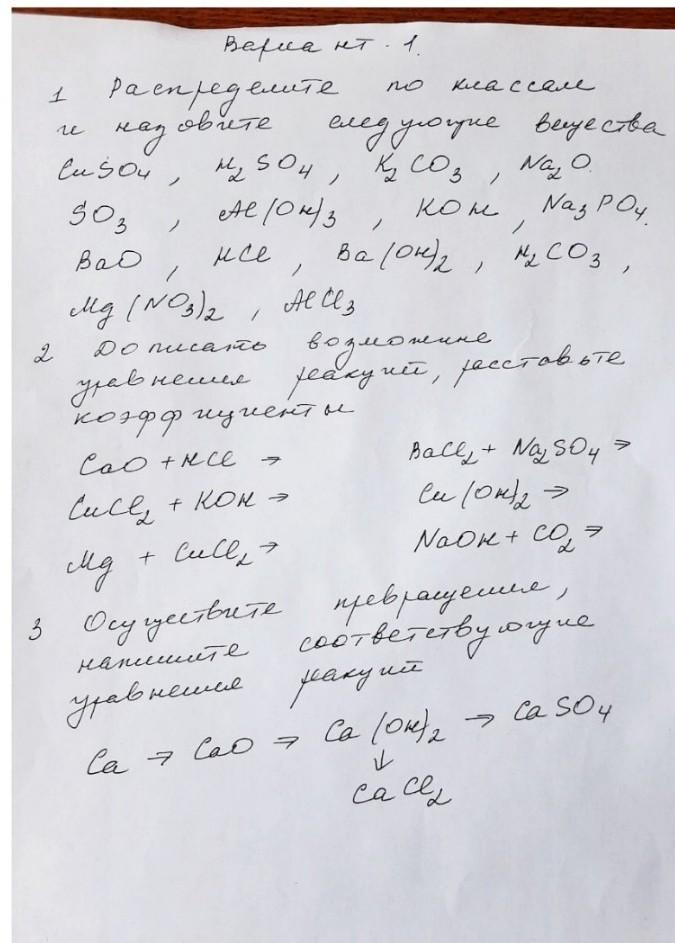 Вариант . 1.
1 Распределите по классам
и назовите следующие вещества
CuSO4 , H2SO4 , K2CO3 , Na2O.
SO3 , Al(OH)3 , KOH , Na3PO4.
BaO , HCl , Ba(OH)2 , H2CO3 ,
Mg(NO3)2 , AlCl3
2 Дописать возможные
уравнения реакций, расставьте
коэффициенты
CaO + HCl → BaCl2 + Na2SO4 →
CuCl2 + KOH → Cu(OH)2 →
Mg + CuCl2 → NaOH + CO2 →
3 Осуществите превращения,
напишите соответствующие
уравнения реакций
Ca → CaO → Ca(OH)2 → CaSO4
↓
CaCl2